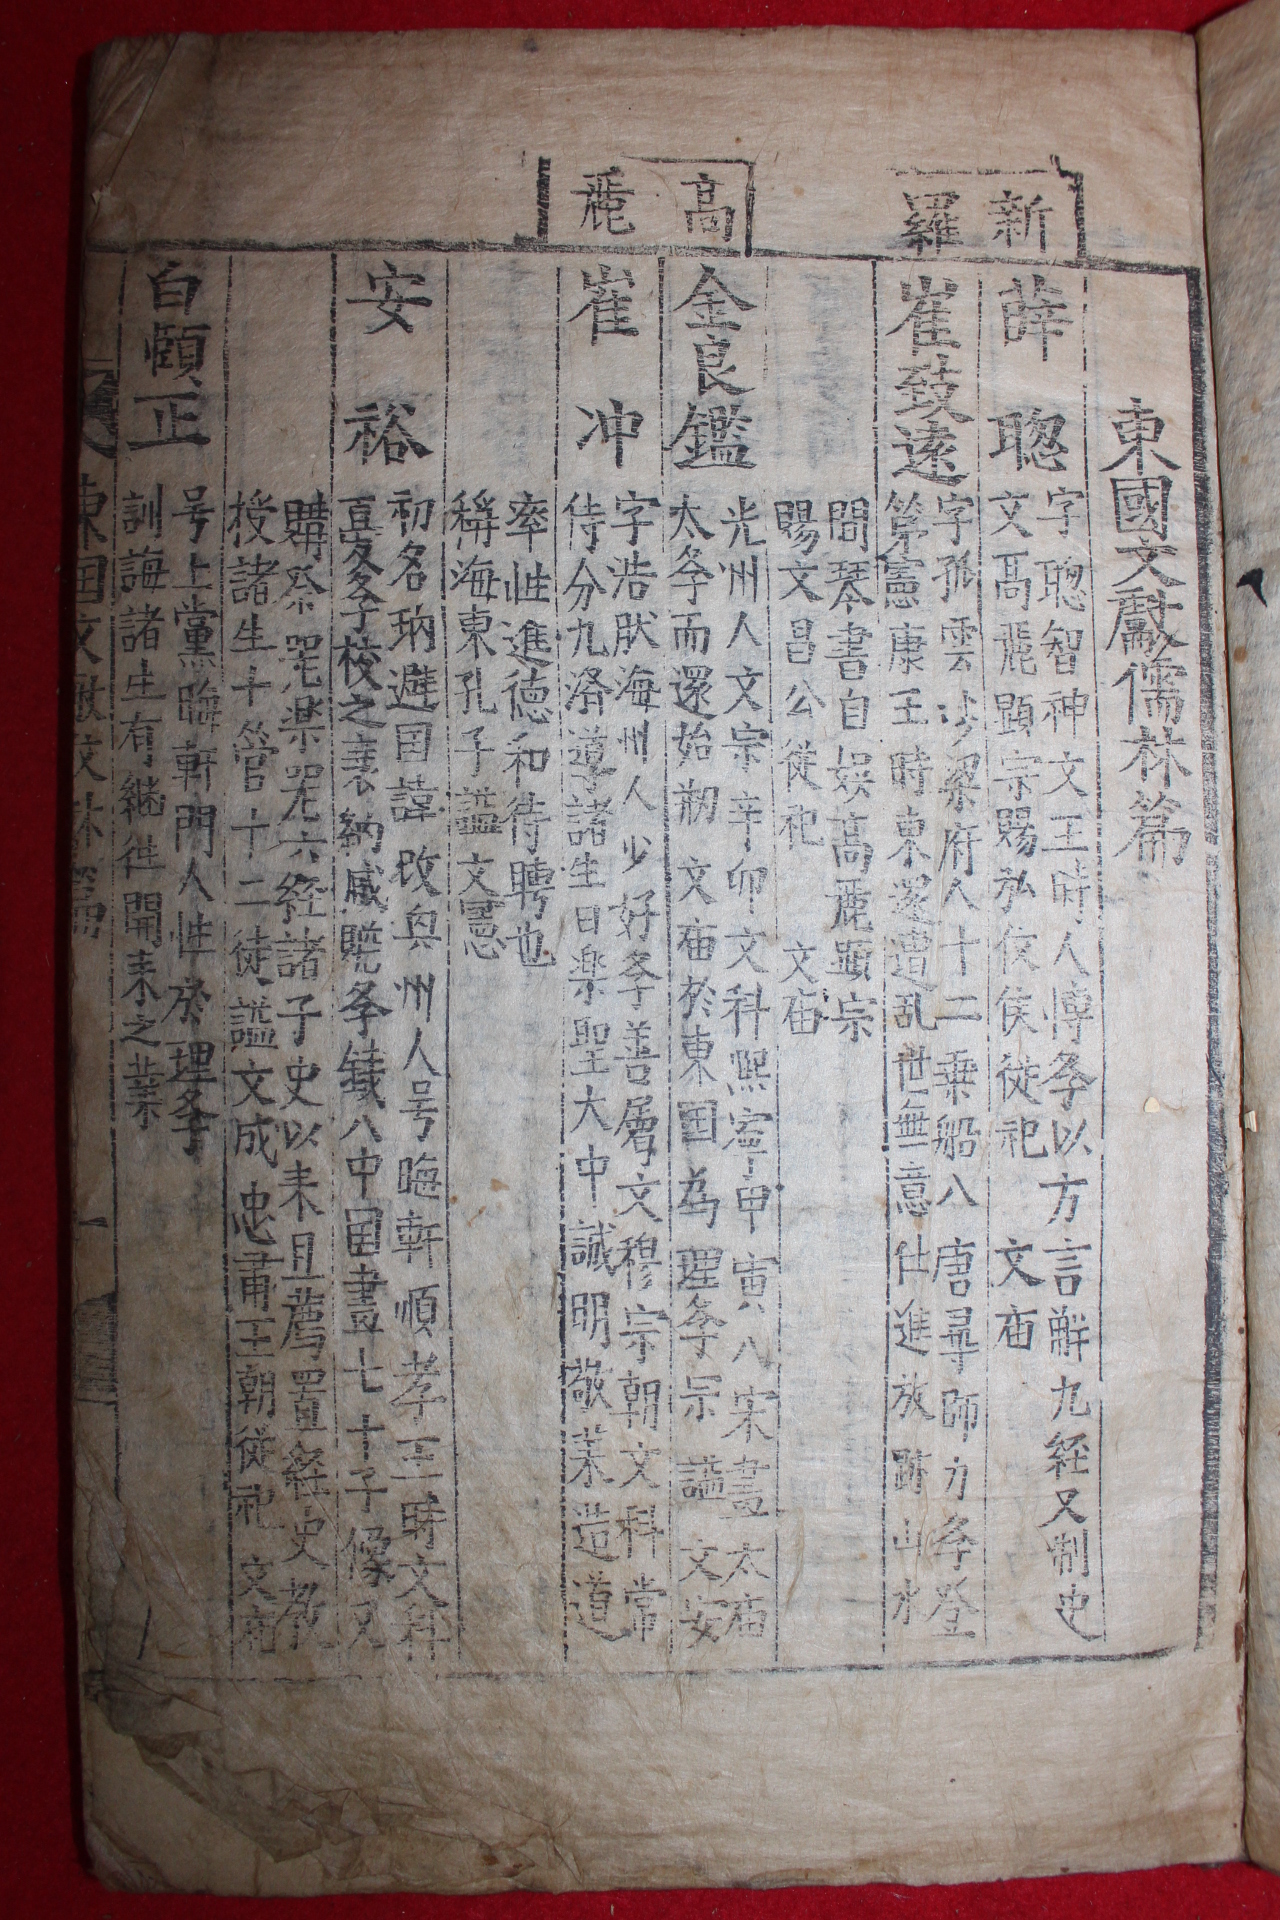 新羅
高麗
東國文獻儒林篇
薛聰
字聰智神文王時人博斈以方言解九経又制吏
文高麗顕宗賜弘侫侯従祀 文庙
崔致遠
字孤雲沙梁府人十二乗船入唐尋師力斈登
第憲康王時東還遭乱世無意仕進放跡山水
間琴書自娛高麗顕宗
賜文昌公従祀 文庙
金良鑑
光州人文宗辛卯文科熙寧甲寅入宋畫太庙
太斈而還始刱 文庙於東国為理斈宗謚文安
崔冲
字浩肰海州人少好斈善属文穆宗朝文科常
侍分九済導諸生曰楽聖大中誠明敬業造道
率性進德和待聘也
稱海東孔子謚文憲
安裕
初名珦避国諱改興州人号晦軒順孝王時文科
憂斈校之衰納臧贍斈錢入中国畫七十子像又
購祭器楽器六経諸子史以来且薦置経史教
授諸生十管十二徒謚文成忠肅王朝従祀文庙
白頤正
号上黨晦軒門人性於理斈
訓誨諸生有継徃開来之業
東国文献儒林篇
一